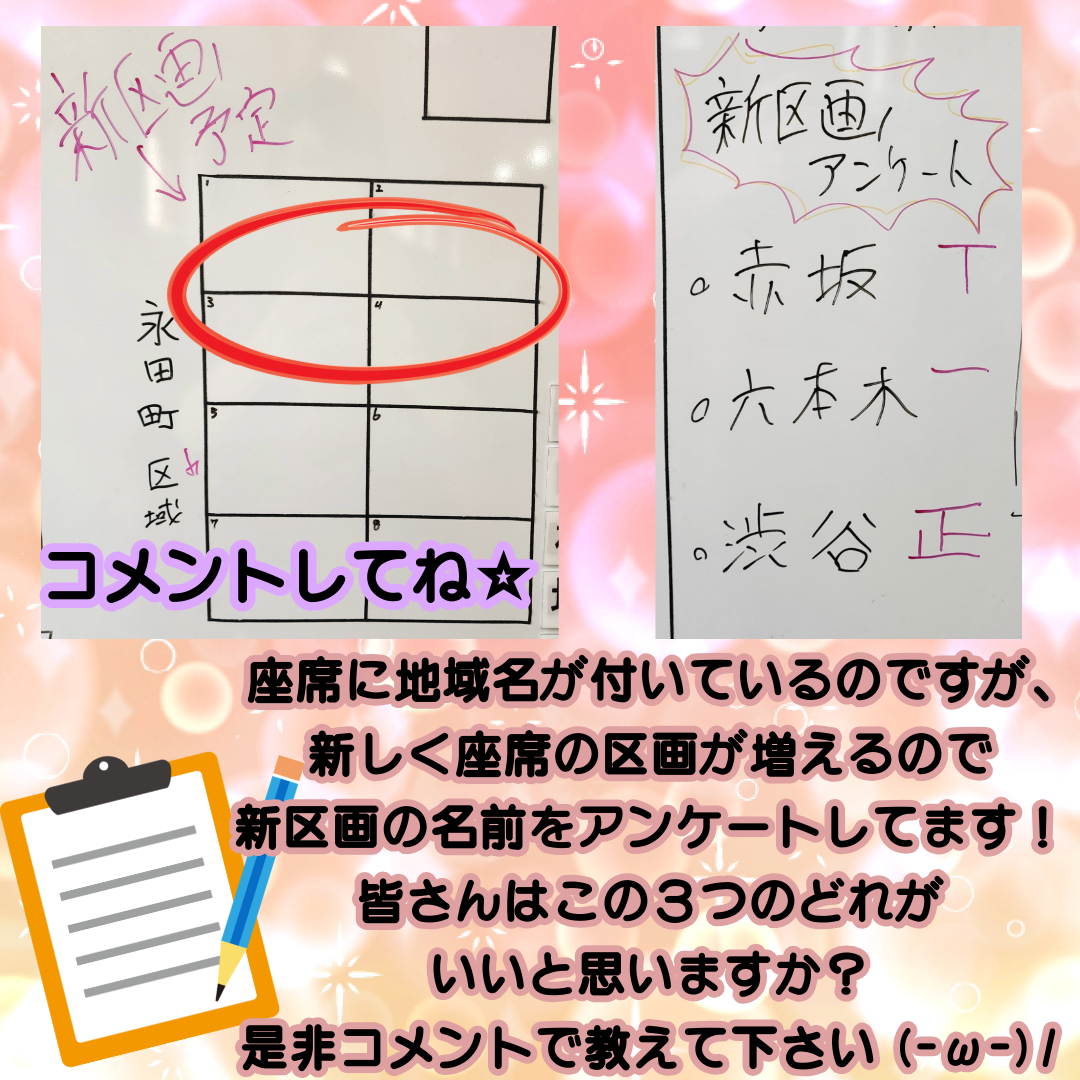 新区画
予定
1
2
3
4
5
6
7
8
永田町区域
コメントしてね☆
新区画
アンケート
○赤坂 丅
○六本木 一
○渋谷 正
座席に地域名が付いているのですが、
新しく座席の区画が増えるので
新区画の名前をアンケートしてます！
皆さんはこの３つのどれが
いいと思いますか？
是非コメントで教えて下さい (-ω-)/